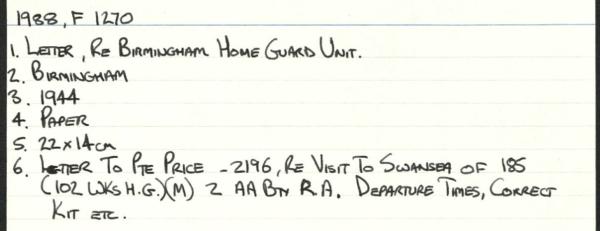 1988, F 1270
1. LETTER, RE BIRMINGHAM HOME GUARD UNIT.
2. BIRMINGHAM
3. 1944
4. PAPER
5. 22 x 14 cm
6. LETTER TO PTE PRICE - 2196, RE VISIT TO SWANSEA OF 185
(102 WKS H.G.)(M) 2 AA BTY R.A. DEPARTURE TIMES, CORRECT
KIT ETC.